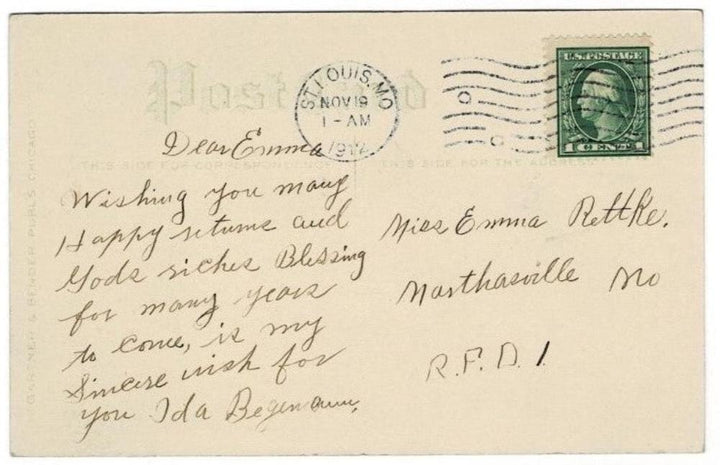 Post Card
ST. LOUIS, MO
NOV 19
1 - AM
U.S. POSTAGE
1 CENT 1
THIS SIDE FOR CORRESPONDENCE
THIS SIDE FOR THE ADDRESS
GARTNER & BENDER PUBLS. CHICAGO
Dear Emma
Wishing you many
Happy returns and
Gods riches Blessing
for many years
to come, is my
Sincere wish for
you Ida
Miss Emma Rettke.
Marthasville Mo
R.F.D. 1